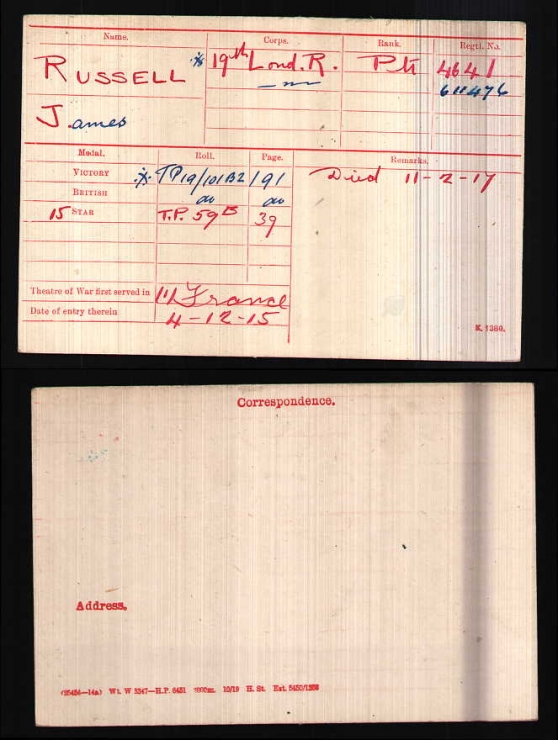 Name. Corps. Rank. Regtl. No.
RUSSELL ※ 19th Lond. R. Pte 4641
—"— 611476
James
Medal. Roll. Page. Remarks.
VICTORY ※ TP19/101B2/91 Died 11-2-17
BRITISH do do
15 STAR T.P. 59B 39
Theatre of War first served in France
Date of entry therein 4-12-15
K. 1380.
Correspondence.
Address.
10/19 H. St.